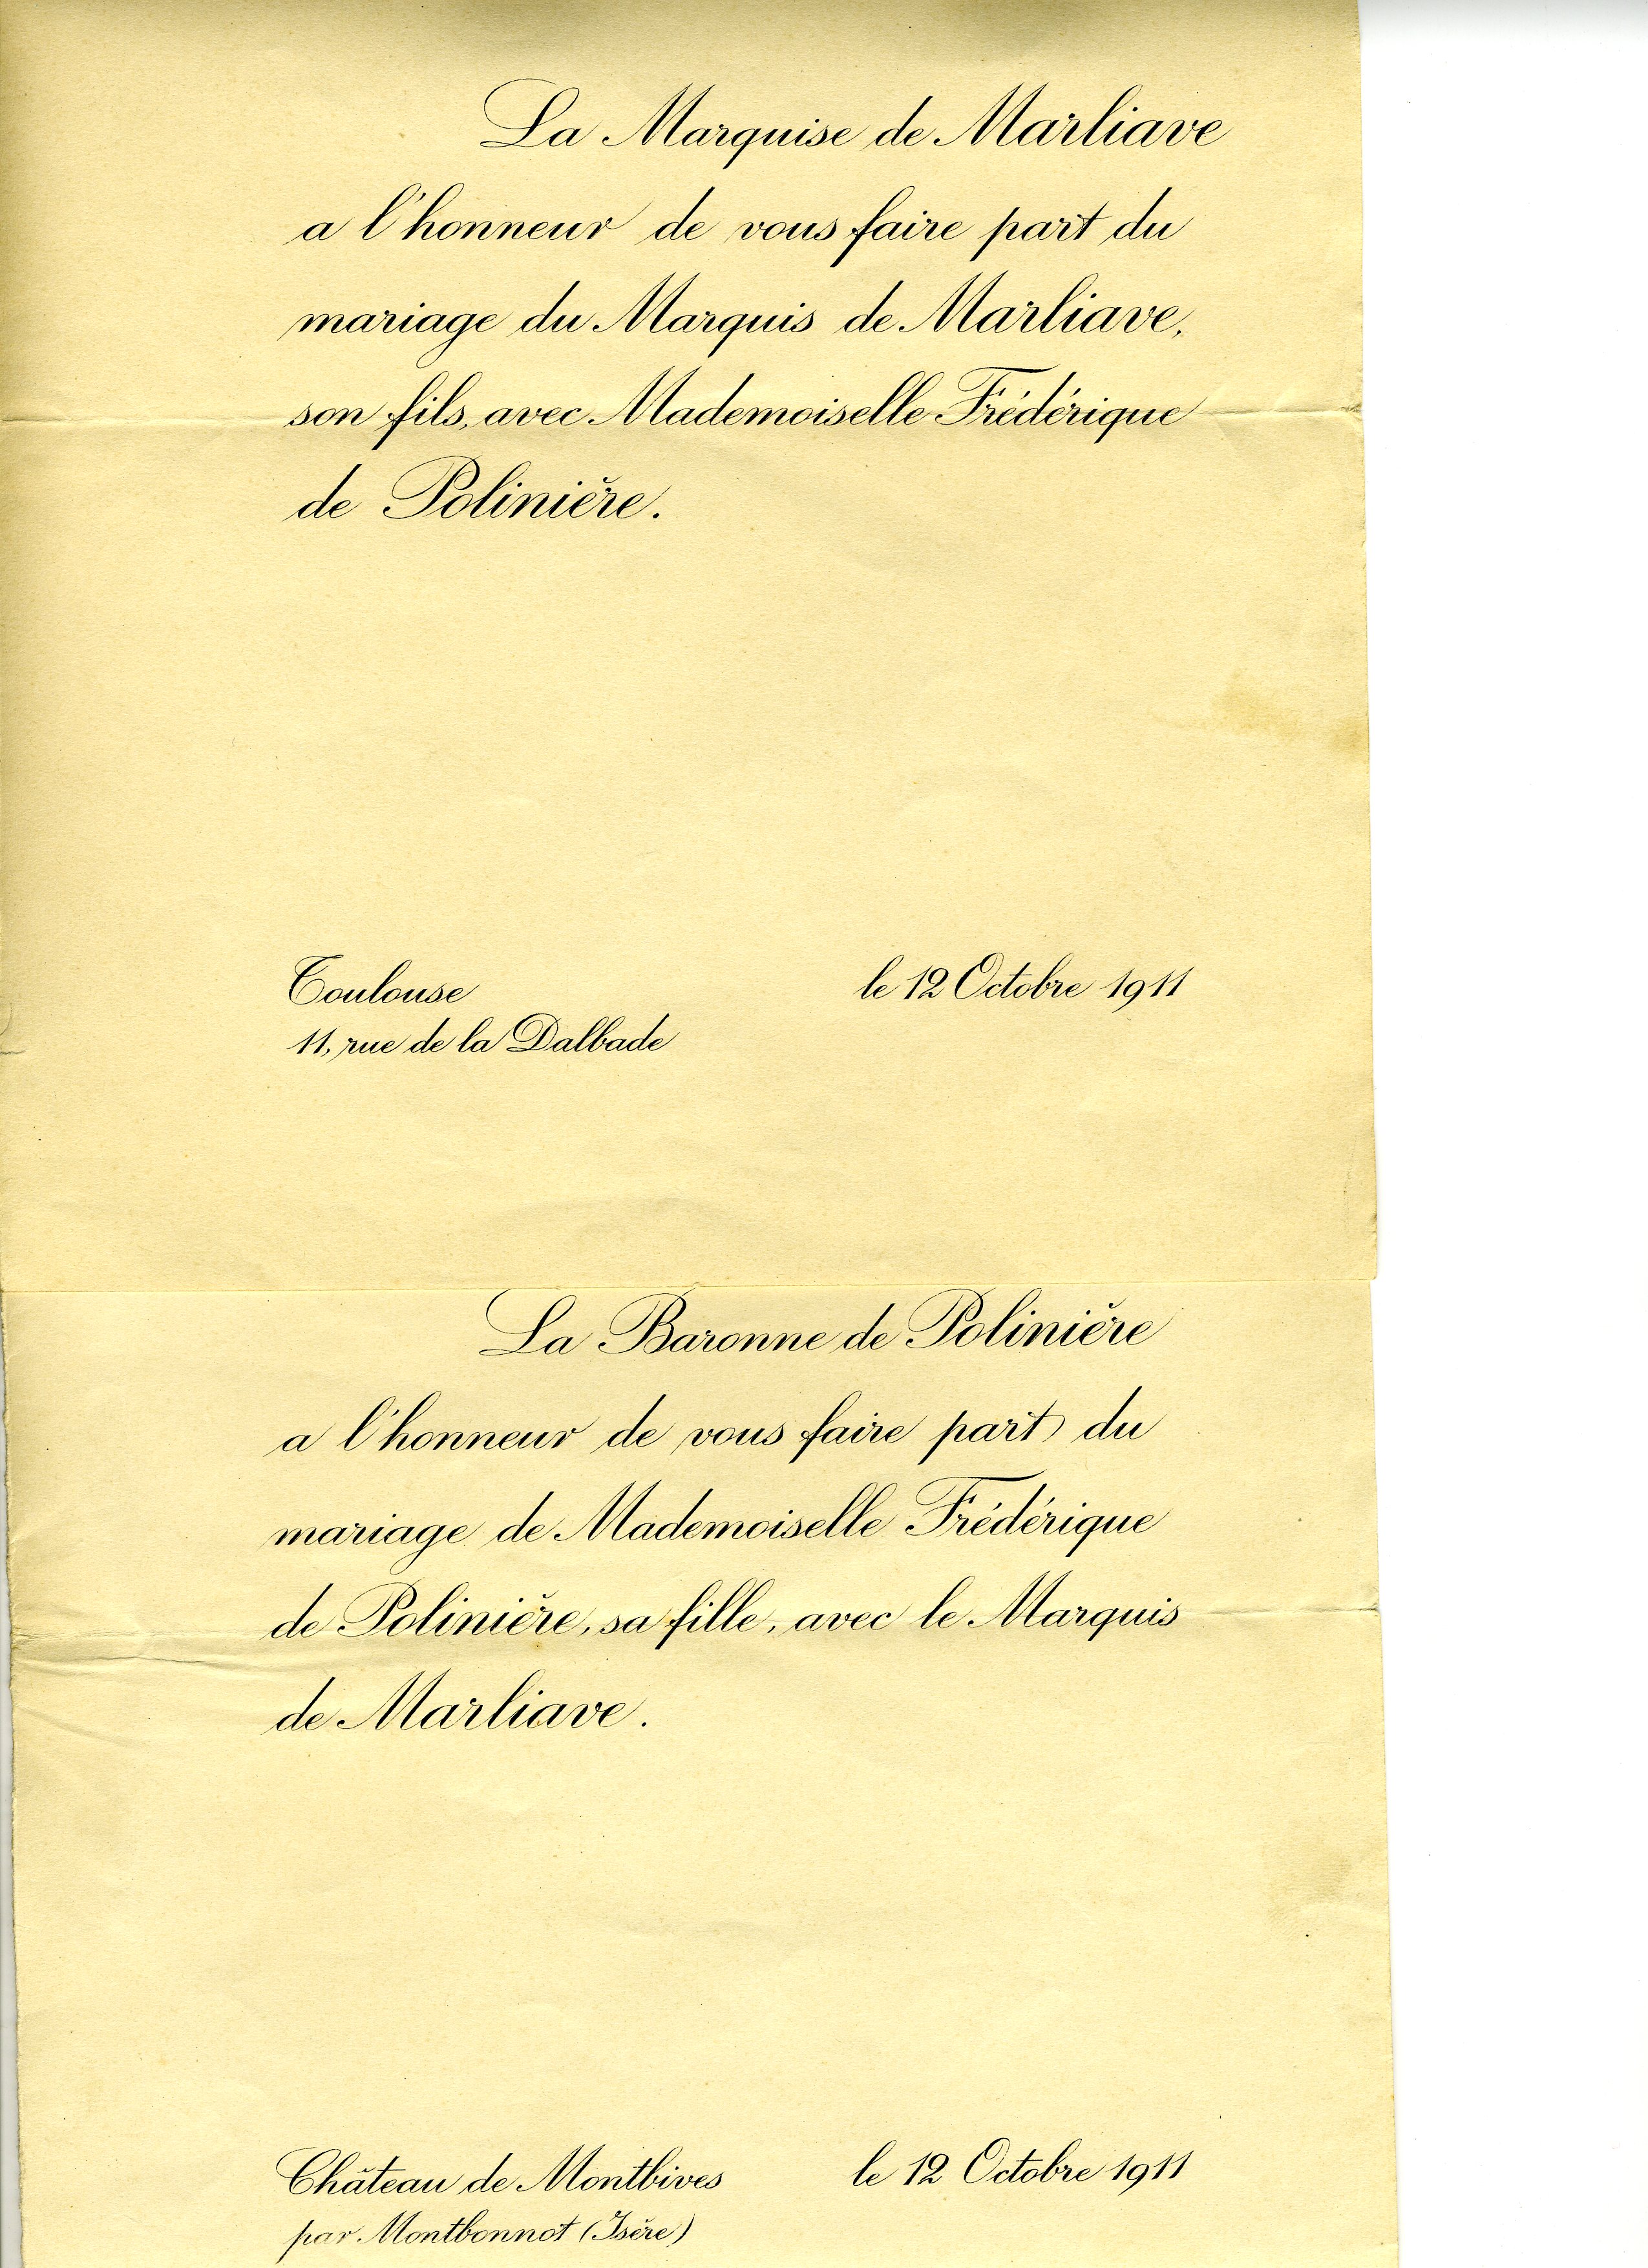 La Marquise de Marliave
a l'honneur de vous faire part du
mariage du Marquis de Marliave,
son fils, avec Mademoiselle Frédérique
de Polinière.
Toulouse
le 12 Octobre 1911
11, rue de la Dalbade
La Baronne de Polinière
a l'honneur de vous faire part du
mariage de Mademoiselle Frédérique
de Polinière, sa fille, avec le Marquis
de Marliave.
Château de Montbives
le 12 Octobre 1911
par Montbonnot (Isère)